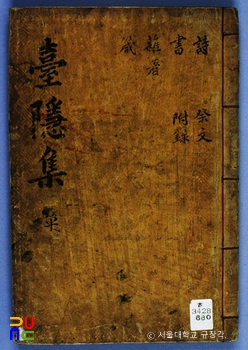 臺隱集 單
詩 祭文
書 附錄
雜著
箴
古
3428
680
ⓒ 서울대학교 규장각